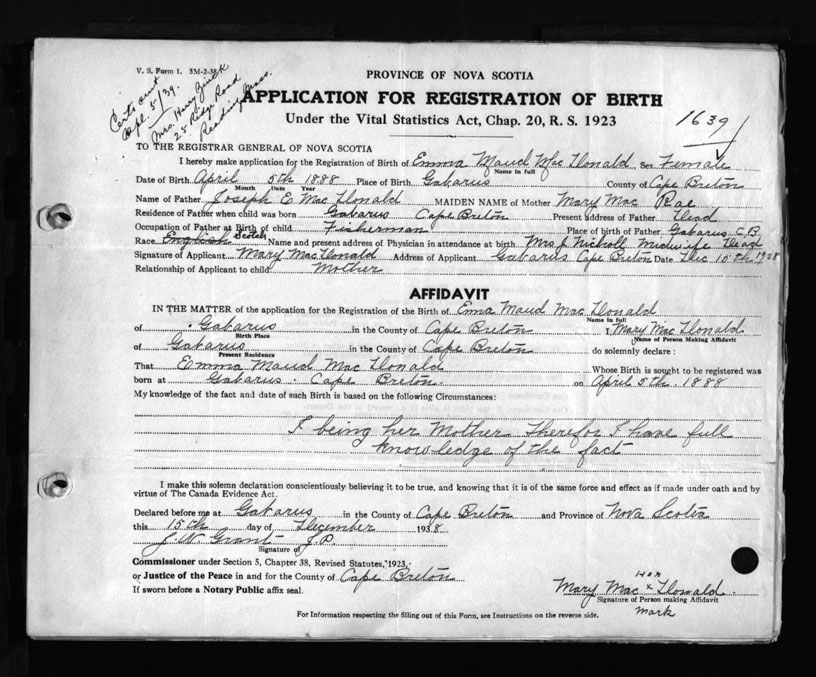 V. S. Form 1. 5M-2-38
Certs. sent
Apl. 5/39.
Mrs. Harry Zinck
25 Ridge Road
Reading, Mass.
PROVINCE OF NOVA SCOTIA
APPLICATION FOR REGISTRATION OF BIRTH
Under the Vital Statistics Act, Chap. 20, R. S. 1923
1639
TO THE REGISTRAR GENERAL OF NOVA SCOTIA
I hereby make application for the Registration of Birth of Emma Maud MacDonald Sex Female
Name in full
Date of Birth April 5th 1888 Place of Birth Gabarus County of Cape Breton
Month Date Year
Name of Father Joseph E MacDonald MAIDEN NAME of Mother Mary Mac Rae
Residence of Father when child was born Gabarus Cape Breton Present address of Father Dead
Occupation of Father at Birth of child Fisherman Place of birth of Father Gabarus C,B
Race English Scotch Name and present address of Physician in attendance at birth Mrs J Nicholl Midwife Dead
Signature of Applicant Mary MacDonald Address of Applicant Gabarus Cape Breton Date Dec 15th 1938
Relationship of Applicant to child Mother
AFFIDAVIT
IN THE MATTER of the application for the Registration of the Birth of Emma Maud MacDonald
Name in full
of Gabarus in the County of Cape Breton I, Mary MacDonald
Birth Place Name of Person Making Affidavit
of Gabarus in the County of Cape Breton do solemnly declare :
Present Residence
That Emma Maud MacDonald Whose Birth is sought to be registered was
born at Gabarus. Cape Breton. on April 5th. 1888
My knowledge of the fact and date of such Birth is based on the following Circumstances:
I being her Mother therefor I have full
knowledge of the fact
I make this solemn declaration conscientiously believing it to be true, and knowing that it is of the same force and effect as if made under oath and by
virtue of The Canada Evidence Act.
Declared before me at Gabarus in the County of Cape Breton and Province of Nova Scotia
this 15th day of December 1938
J W Grant J.P.
Signature of
Commissioner under Section 5, Chapter 38, Revised Statutes, 1923,
or Justice of the Peace in and for the County of Cape Breton
If sworn before a Notary Public affix seal.
Her
Mary Mac x Donald
Signature of Person making Affidavit
Mark
For Information respecting the filling out of this Form, see Instructions on the reverse side.